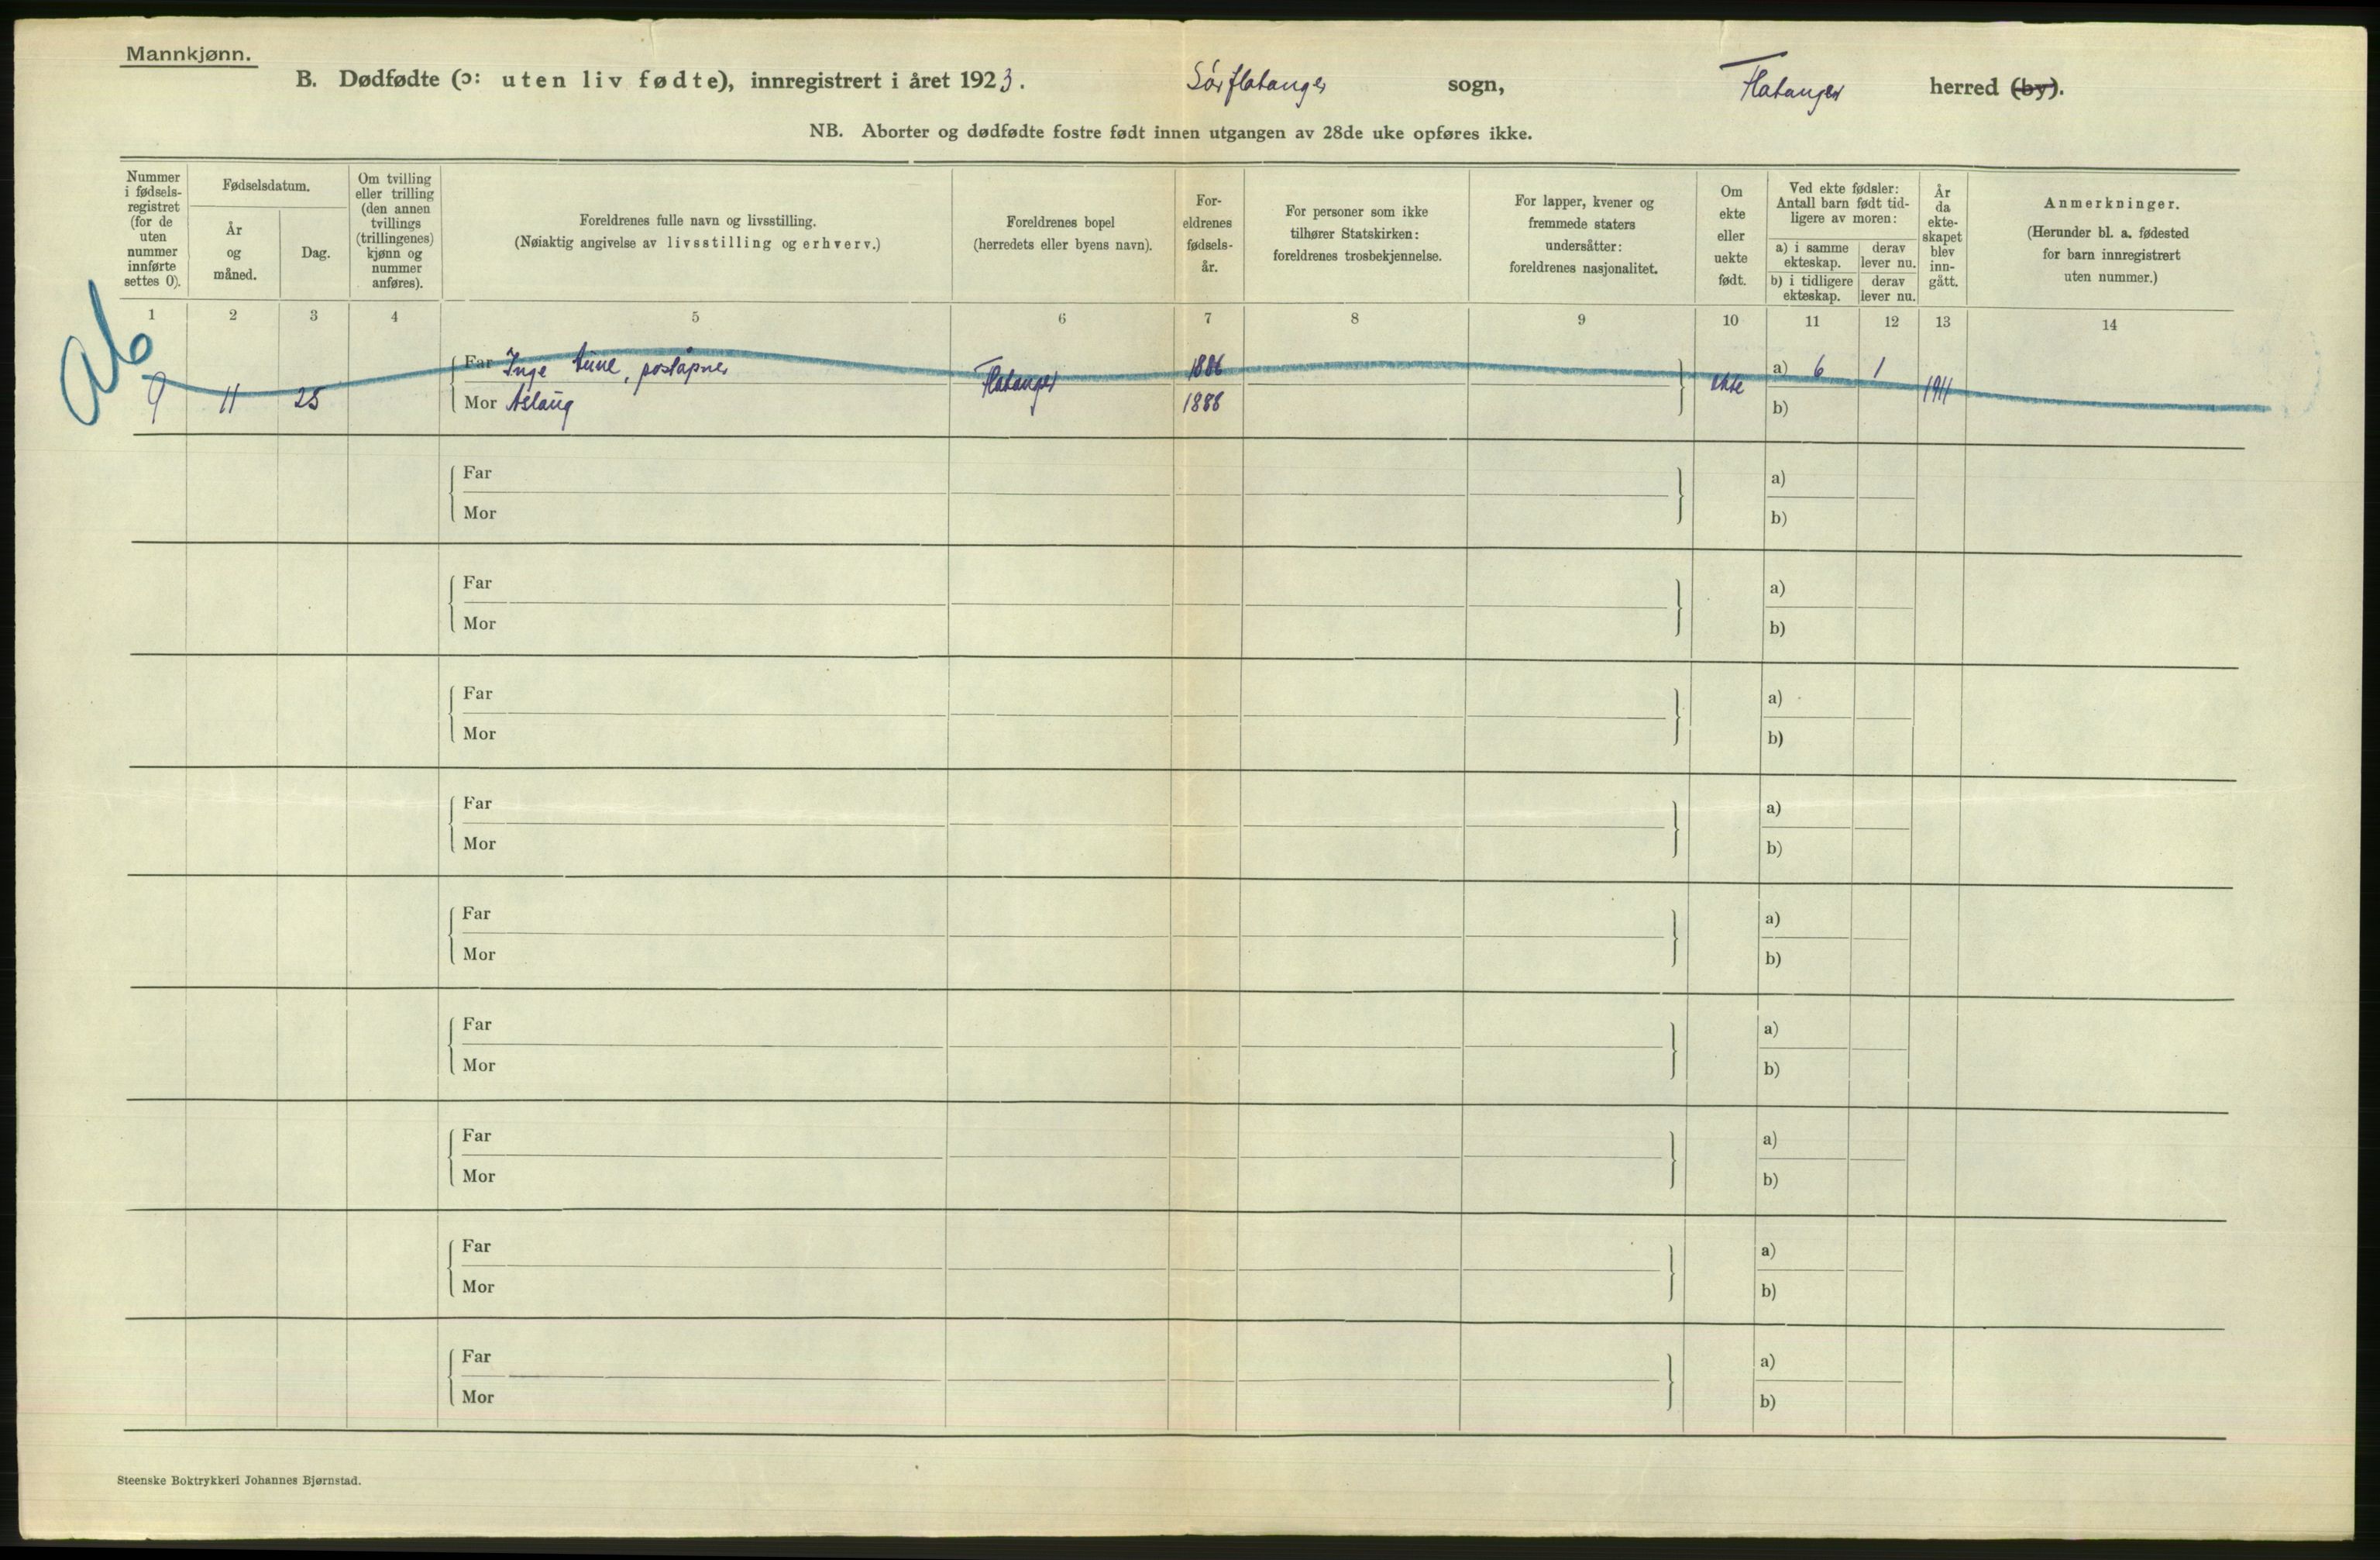 Mannkjønn.
B. Dødfødte (ɔ: uten liv fødte), innregistrert i året 1923. Sør flatanger sogn, Flatanger herred (by).
NB. Aborter og dødfødte fostre født innen utgangen av 28de uke opføres ikke.
Nummer
i fødsels-
registret
(for de
uten
nummer
innførte
settes 0).
Fødselsdatum.
År
og
måned.
Dag.
Om tvilling
eller trilling
(den annen
tvillings
(trillingenes)
kjønn og
nummer
anføres).
Foreldrenes fulle navn og livsstilling.
(Nøiaktig angivelse av livsstilling og erhverv.)
Foreldrenes bopel
(herredets eller byens navn).
For-
eldrenes
fødsels-
år.
For personer som ikke
tilhører Statskirken:
foreldrenes trosbekjennelse.
For lapper, kvener og
fremmede staters
undersåtter:
foreldrenes nasjonalitet.
Om
ekte
eller
uekte
født.
Ved ekte fødsler:
Antall barn født tid-
ligere av moren:
a) i samme
ekteskap.
derav
lever nu.
b) i tidligere
ekteskap.
derav
lever nu.
År
da
ekte-
skapet
blev
inn-
gått.
Anmerkninger.
(Herunder bl. a. fødested
for barn innregistrert
uten nummer.)
1 2 3 4 5 6 7 8 9 10 11 12 13 14
Ab
Far Inge Aune, poståpner 1886 a) 6 1
9 11 25 Flatanger ekte 1911
Mor Aslaug 1888 b)
Far a)
Mor b)
Far a)
Mor b)
Far a)
Mor b)
Far a)
Mor b)
Far a)
Mor b)
Far a)
Mor b)
Far a)
Mor b)
Far a)
Mor b)
Far a)
Mor b)
Steenske Boktrykkeri Johannes Bjørnstad.